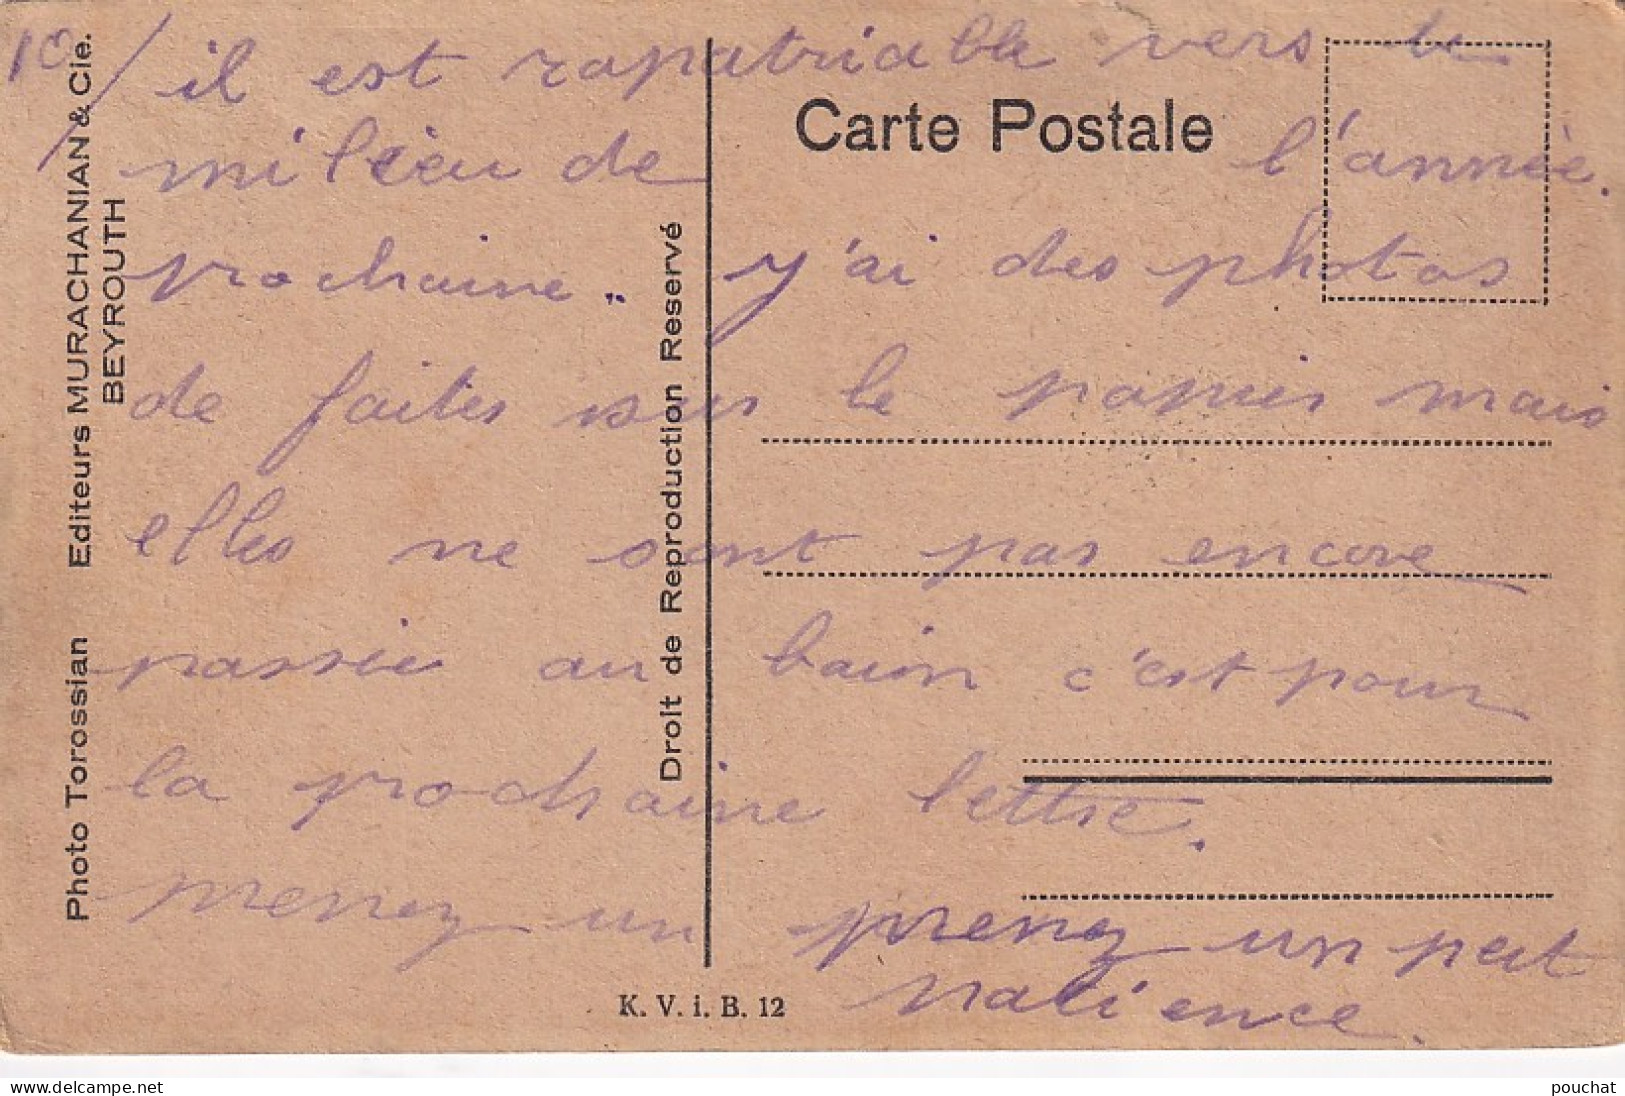 10/ il est rapatriable vers le
milieu de l'année.
prochaine.. j'ai des photos
de faites sur le papier mais
elles ne sont pas encore
passée au bain c'est pour
la prochaine lettre.
prenez un prenez un peut
patience.
Carte Postale
Photo Torossian Editeurs MURACHANIAN & Cie.
BEYROUTH
Droit de Reproduction Reservé
K. V. i. B. 12
delcampe.net
pouchat